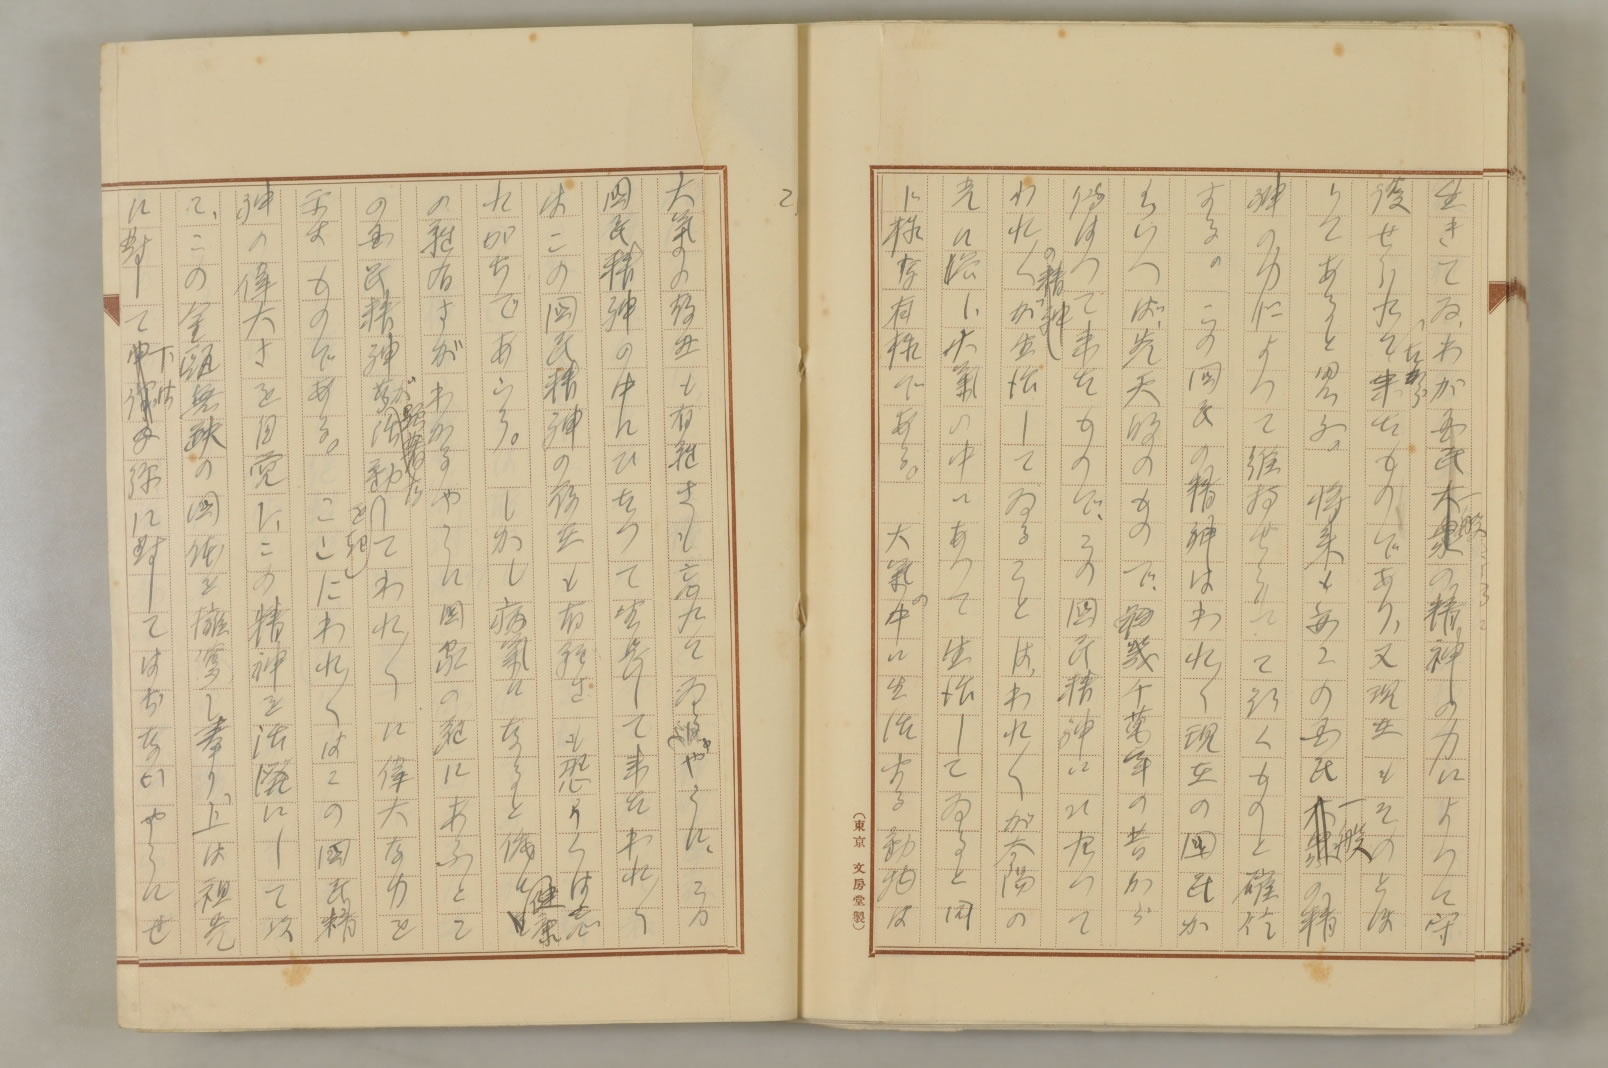 生きてゐわが国民一般の精神の力によつて守
護せられて来たものであり、又現在もそのとほ
りであると思ふ。将来も毎この国民一般の精
神の力によつて維持せられて行くものと確信
する。この国民の精神はわれ〱現在の国民か
らいへば、先天的のもので、幾千万年の昔から
伝はつて来たもので、この国民精神に依つて
われ〱の精神が生活してゐることは、われ〱が太陽の
光に浴し、大気の中にあつて生活してゐると同
じ様な有様である。大気の中に生活する動物は
(東京 文房堂製)
2.
大気の存在も有難さも忘れてゐるやうに、この
国民精神の中にひたつて生長して来たわれ〱
はこの国民精神の存在も有難さも恐らくは忘
れがちであらう。しかし病気になると健康
の難有さがわかるやうに国家の難にあふとこ
の国民精神が活動を起してわれ〱に偉大な力を
示すものである。ここにわれ〱はこの国民精
神の偉大さを自覚し、この精神を活潑にして以
て、この金甌無缺の国体を擁護し奉り、上は祖先
に対して下は子孫に対してはぢないやうにせ